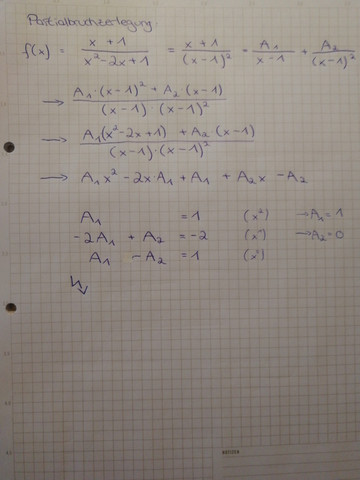 Partialbruchzerlegung:
f(x) = x + 1 / x² - 2x + 1 = x + 1 / (x - 1)² = A₁ / x - 1 + A₂ / (x - 1)²
→ A₁ · (x - 1)² + A₂ (x - 1) / (x - 1) · (x - 1)²
→ A₁(x² - 2x + 1) + A₂ · (x - 1) / (x - 1) · (x - 1)²
→ A₁x² - 2x A₁ + A₁ + A₂x - A₂
A₁ = 1 (x²) → A₁ = 1
-2A₁ + A₂ = -2 (x¹) → A₂ = 0
A₁ - A₂ = 1 (x⁰)